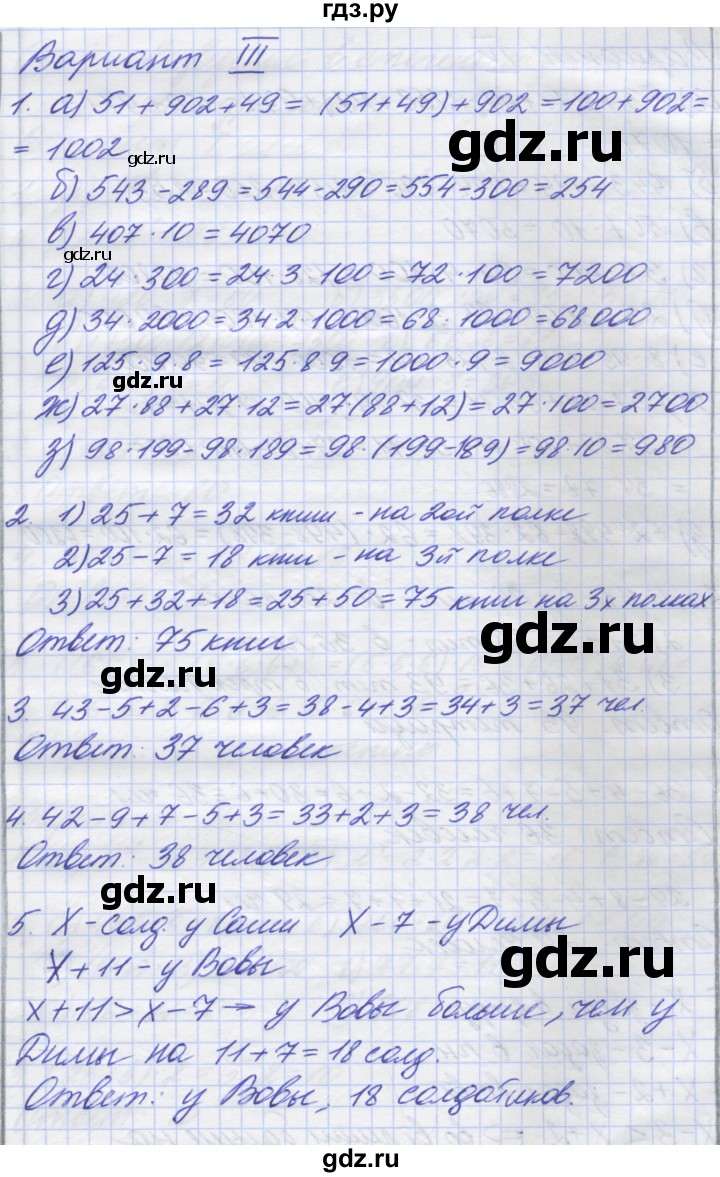 гдз.ру
Вариант III
1. а) 51 + 902 + 49 = (51 + 49) + 902 = 100 + 902 =
= 1002
gdz.ru
gdz.ru
б) 543 - 289 = 544 - 290 = 554 - 300 = 254
в) 407 · 10 = 4070
gdz.ru
г) 24 · 300 = 24 · 3 · 100 = 72 · 100 = 7200
д) 34 · 2000 = 34 · 2 · 1000 = 68 · 1000 = 68 000
е) 125 · 9 · 8 = 125 · 8 · 9 = 1000 · 9 = 9000
gdz.ru
ж) 27 · 88 + 27 · 12 = 27 · (88 + 12) = 27 · 100 = 2700
gdz.ru
з) 98 · 199 - 98 · 189 = 98 · (199 - 189) = 98 · 10 = 980
2. 1) 25 + 7 = 32 книги - на 2ой полке
2) 25 - 7 = 18 книг - на 3й полке
3) 25 + 32 + 18 = 25 + 50 = 75 книг на 3х полках
Ответ: 75 книг
gdz.ru
gdz.ru
3. 43 - 5 + 2 - 6 + 3 = 38 - 4 + 3 = 34 + 3 = 37 чел.
Ответ: 37 человек
gdz.ru
4. 42 - 9 + 7 - 5 + 3 = 33 + 2 + 3 = 38 чел.
Ответ: 38 человек
gdz.ru
5. X - солд. у Саши X - 7 - у Димы
X + 11 - у Вовы
gdz.ru
x + 11 > x - 7 → у Вовы больше, чем у
Димы на 11 + 7 = 18 солд.
gdz.ru
Ответ: у Вовы, 18 солдатиков.
gdz.ru